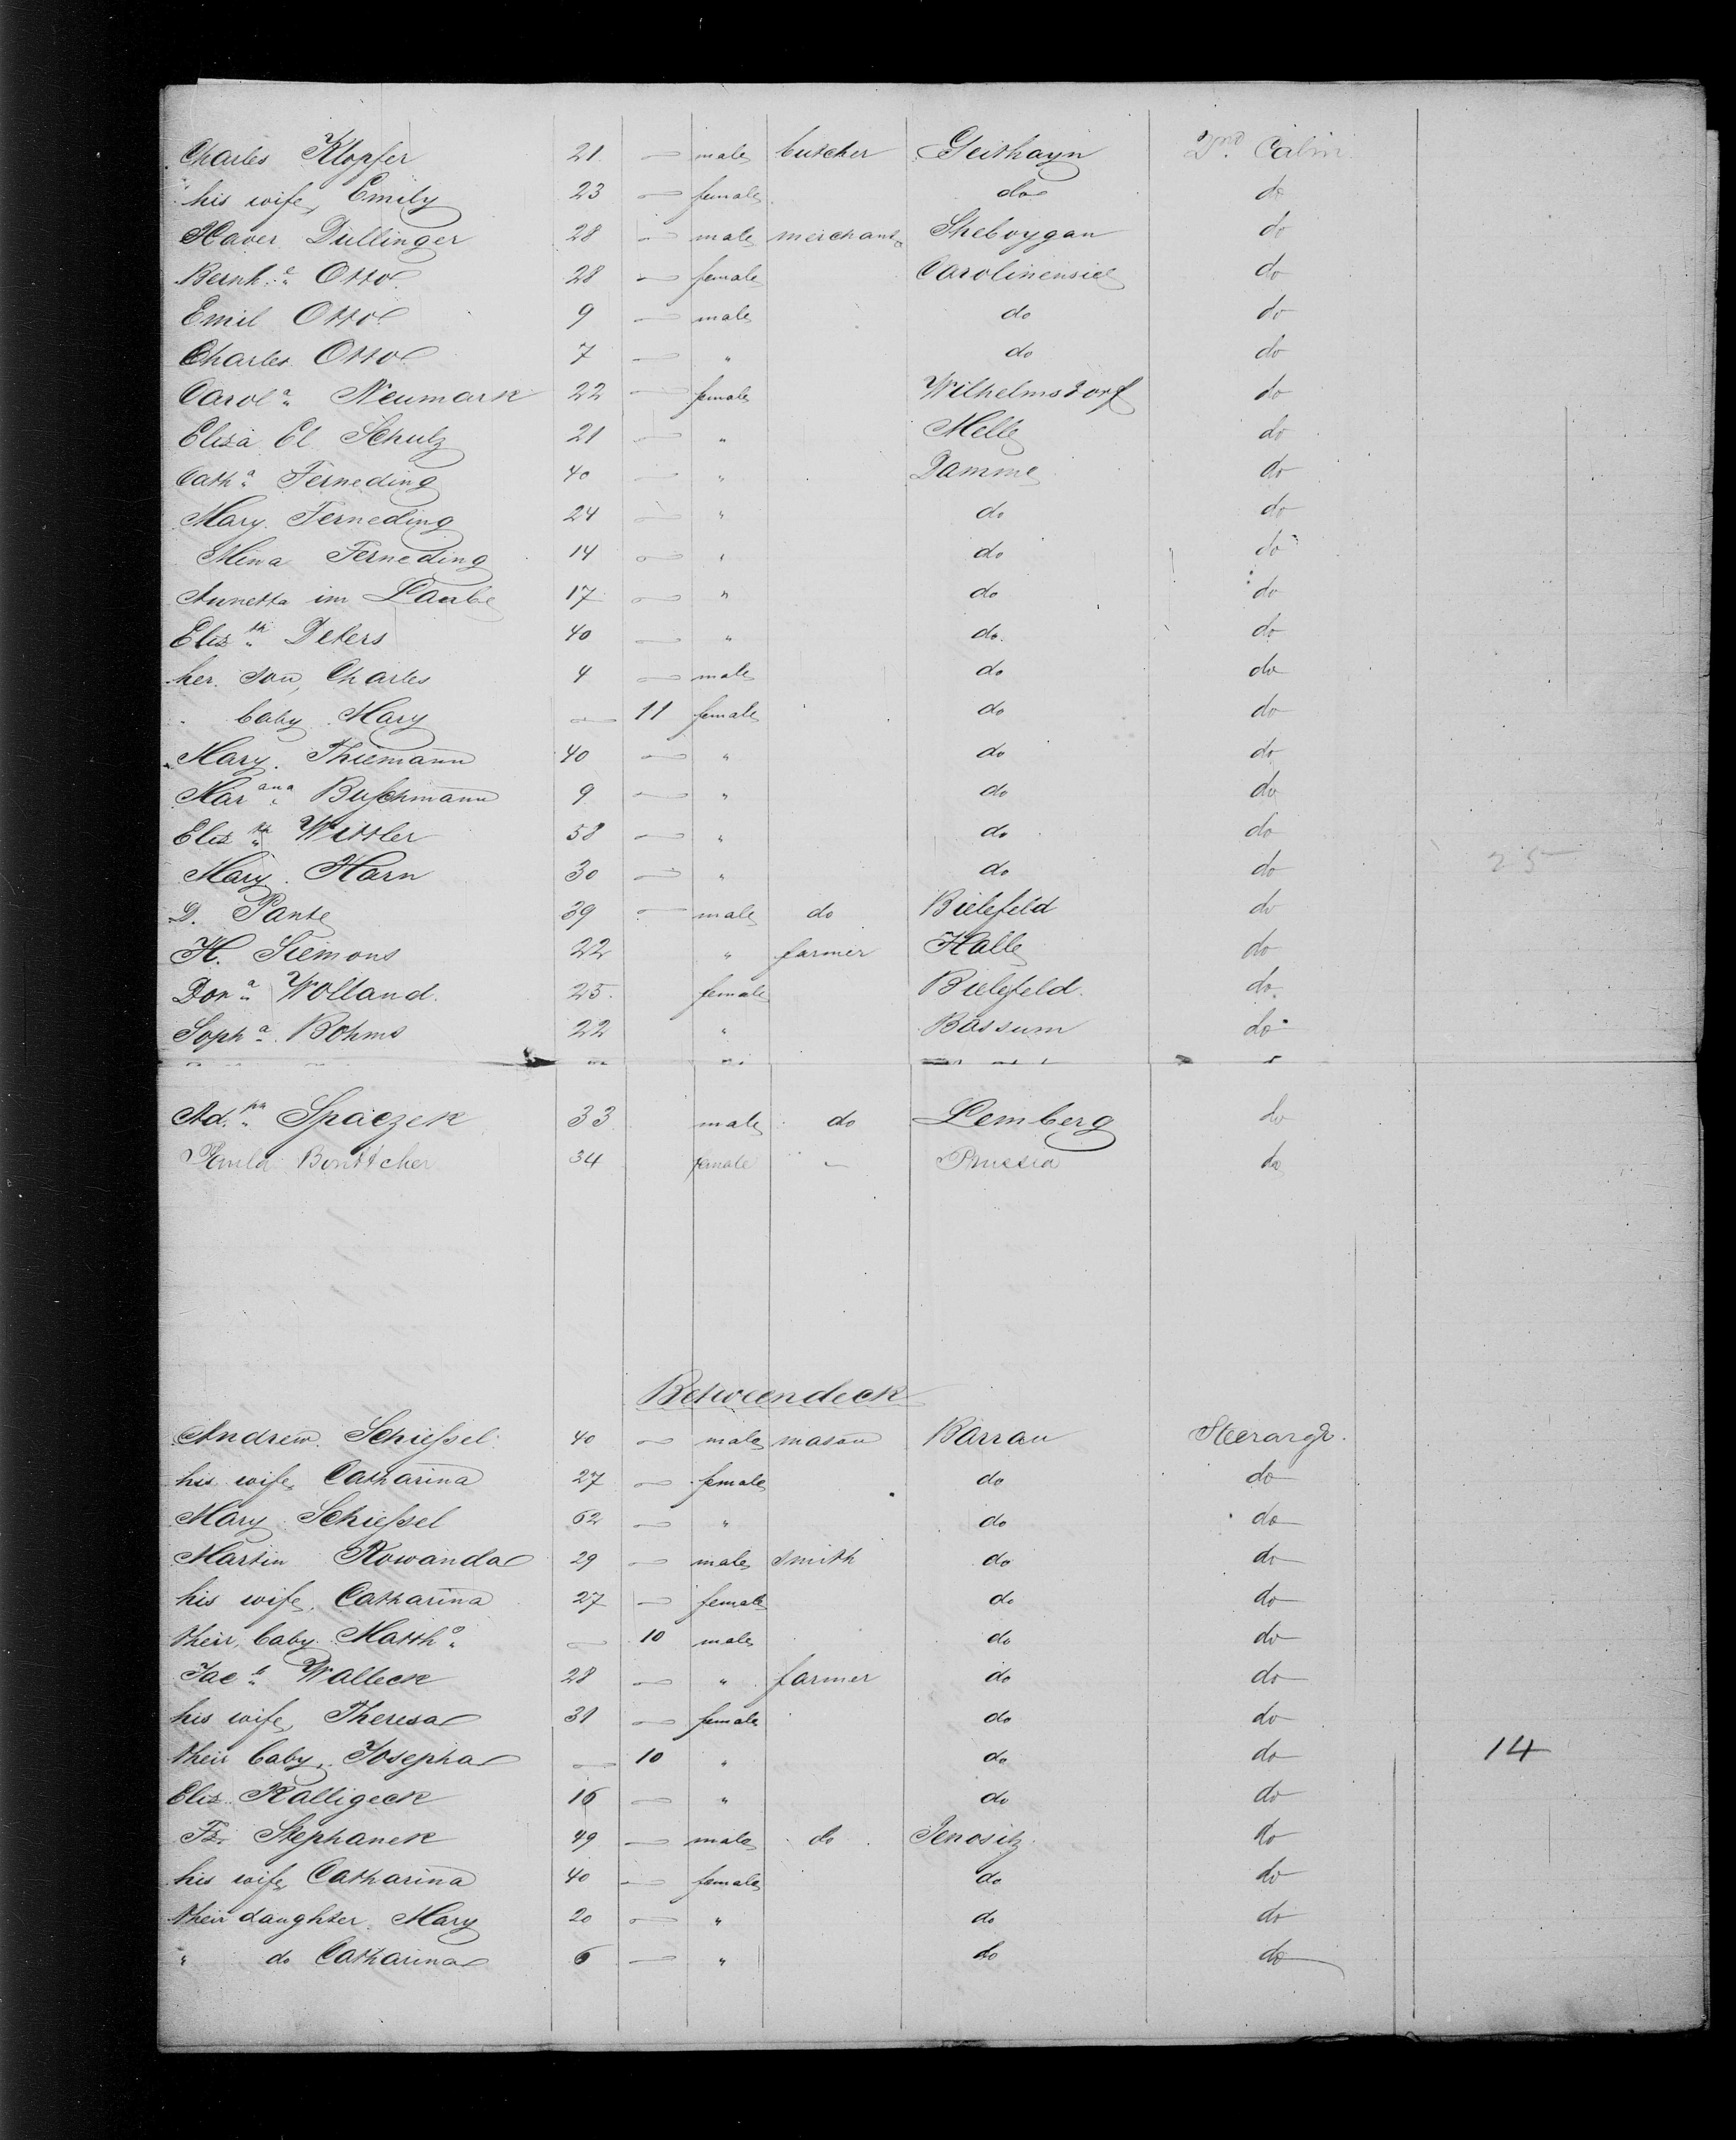 Charles Klopfer 21 — male butcher Geithayn 2nd Cabin
his wife, Emily 23 — female do do
Xaver Dullinger 28 — male merchant Sheboygan do
Bernh.e Otto 28 — female Carolinensiel do
Emil Otto 9 — male do do
Charles Otto 7 — " do do
Carol.a Neumark 22 — female Wilhelmsdorf do
Eliza El Schulz 21 — " Melle do
Cath.a Ferneding 40 — " Damme do
Mary Ferneding 24 — " do do
Mina Ferneding 14 — " do do
Annetta im Laube 17 — " do do
Eliz.th Peters 40 — " do do
her son, Charles 4 — male do do
" baby Mary — 11 female do do
Mary Thiemann 40 — " do do
Mar.ana Buschmann 9 — " do do
Eliz.th Wittler 58 — " do do
Mary Harn 30 — " do do 25
D. Pante 39 — male do Bielefeld do
H. Siemons 22 " farmer Halle do
Dor.a Wolland 25 female Bielefeld do
Soph.a Bohms 22 " Bassum do
Ad.ph Spaczek 33 male do Lemberg do
Boettcher 34 female — Prussia do
Betweendeck
Andrew Schiessel 40 — male mason Barrau Steerage
his wife, Catharina 27 — female do do
Mary Schiessel 62 — " do do
Martin Rowanda 29 — male smith do do
his wife, Catharina 27 — female do do
their baby Matth.s — 10 male do do
Jac.b Walleck 28 — " farmer do do
his wife, Theresa 31 — female do do
their baby, Josepha — 10 " do do 14
Eliz. Kalligeck 16 — " do do
Fz. Stephanek 49 — male do Jenositz do
his wife, Catharina 40 — female do do
their daughter Mary 20 — " do do
" do Catharina 6 — " do do